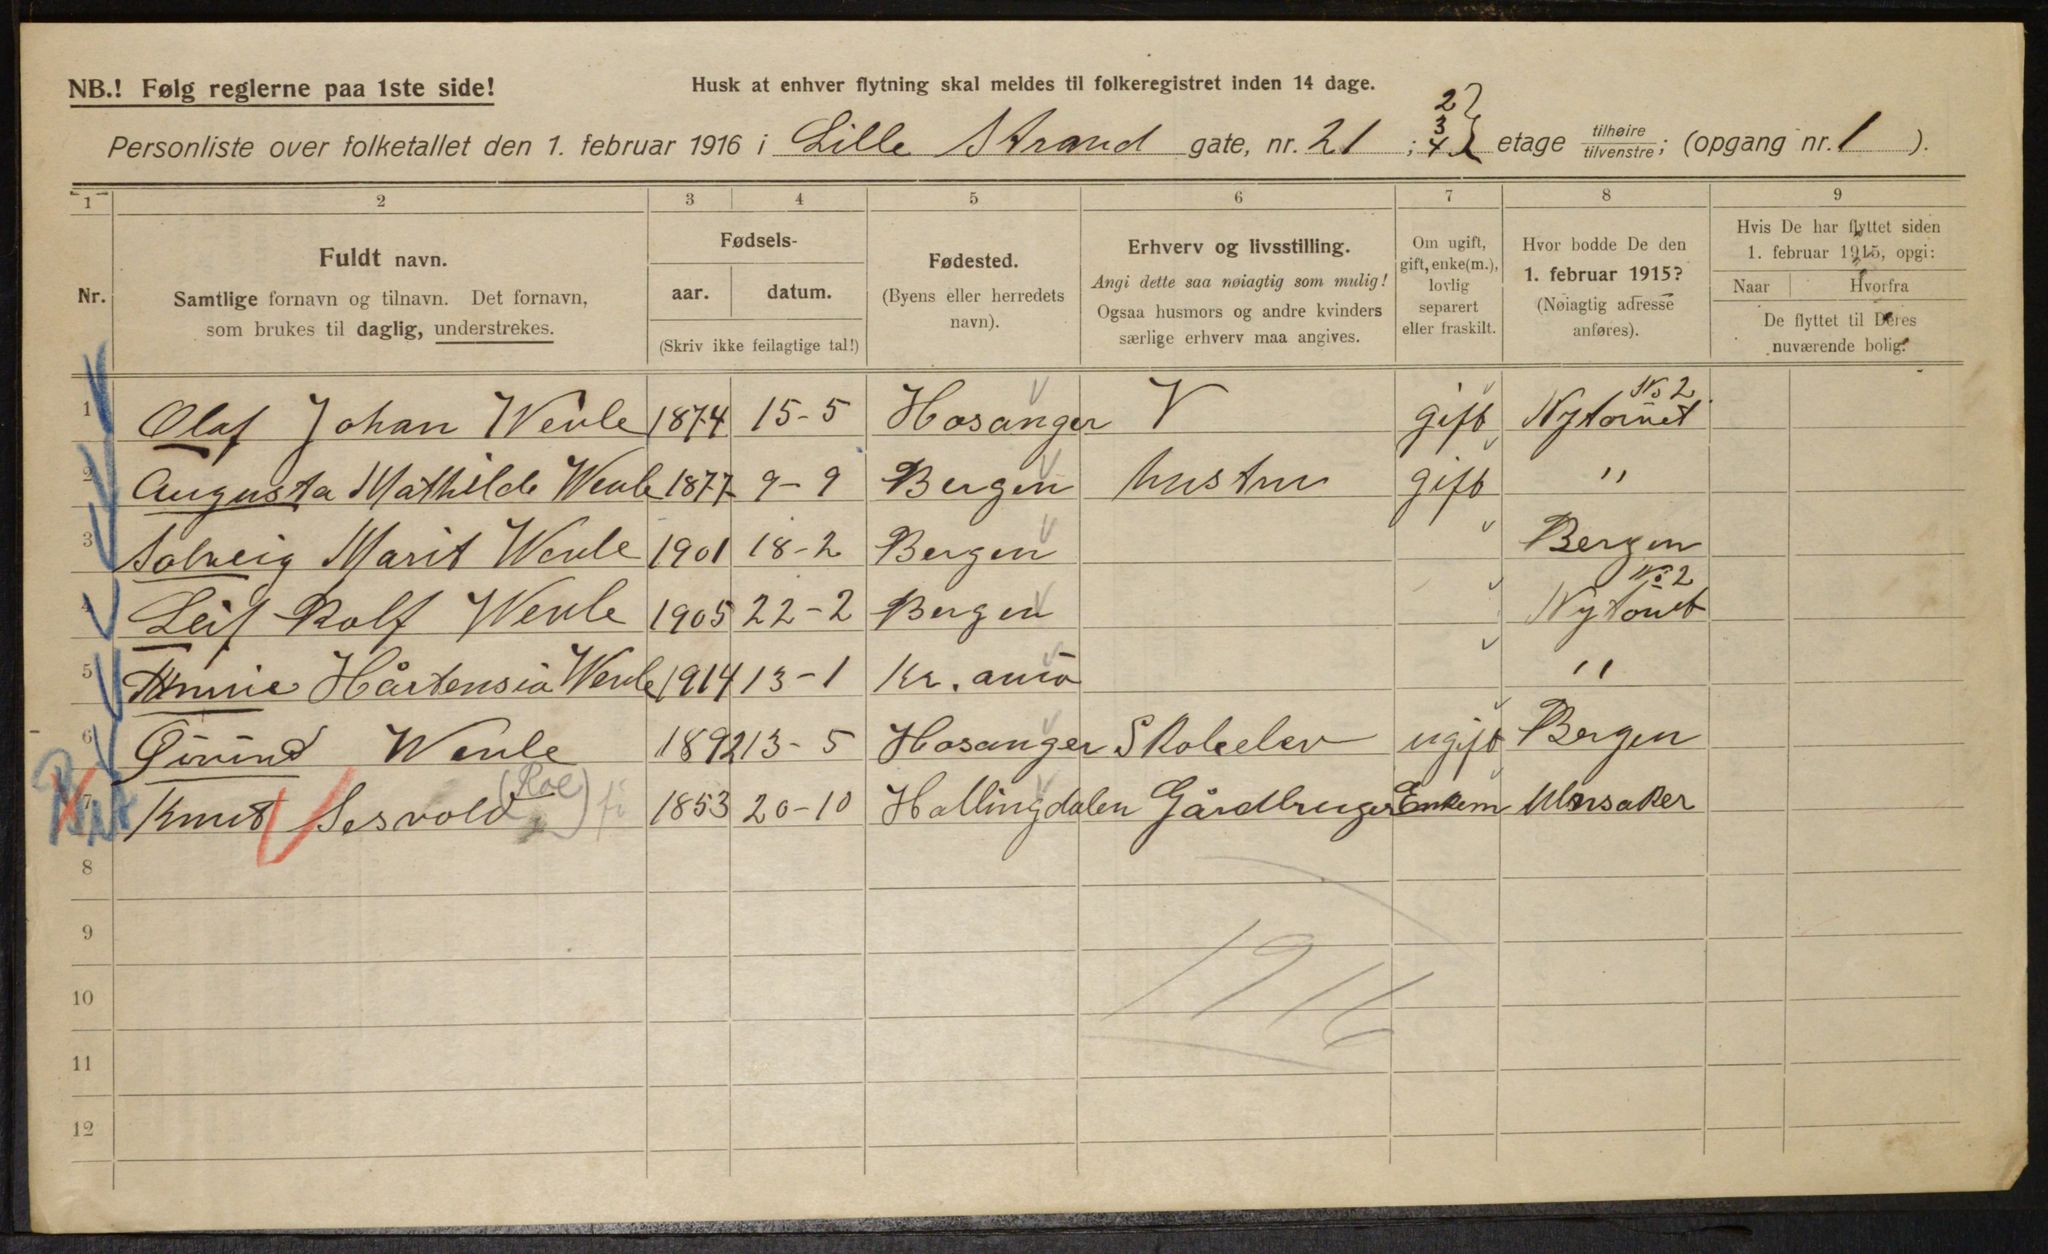 NB.! Følg reglerne paa 1ste side!
Husk at enhver flytning skal meldes til folkeregistret inden 14 dage.
Personliste over folketallet den 1. februar 1916 i Lille Strand gate, nr. 21 ; 2 3 4 etage tilhøire/tilvenstre; (opgang nr. 1 ).
1 2 3 4 5 6 7 8 9
Nr.
Fuldt navn.
Samtlige fornavn og tilnavn. Det fornavn,
som brukes til daglig, understrekes.
Fødsels-
aar. datum.
(Skriv ikke feilagtige tal!)
Fødested.
(Byens eller herredets
navn).
Erhverv og livsstilling.
Angi dette saa nøiagtig som mulig!
Ogsaa husmors og andre kvinders
særlige erhverv maa angives.
Om ugift,
gift, enke(m.),
lovlig
separert
eller fraskilt.
Hvor bodde De den
1. februar 1915?
(Nøiagtig adresse
anføres).
Hvis De har flyttet siden
1. februar 1915, opgi:
Naar Hvorfra
De flyttet til Deres
nuværende bolig.
1 Olaf Johan Wevle 1874 15-5 Hosanger V gift Nytorvet No 2
2 Augusta Mathilde Wevle 1877 9-9 Bergen hustru gift "
3 Solveig Marit Wevle 1901 18-2 Bergen Bergen
4 Leif Rolf Wevle 1905 22-2 Bergen Nytorvet No 2
5 Hårtensia Wevle 1914 13-1 Kr.ania "
6 Øivind Wevle 1892 13-5 Hosanger Skoleelev ugift Bergen
7 Knut Sesvold (Roe) 1853 20-10 Hallingdalen Gårdbruger Enkem Ulnsaker
8
9
10
11
12
1916